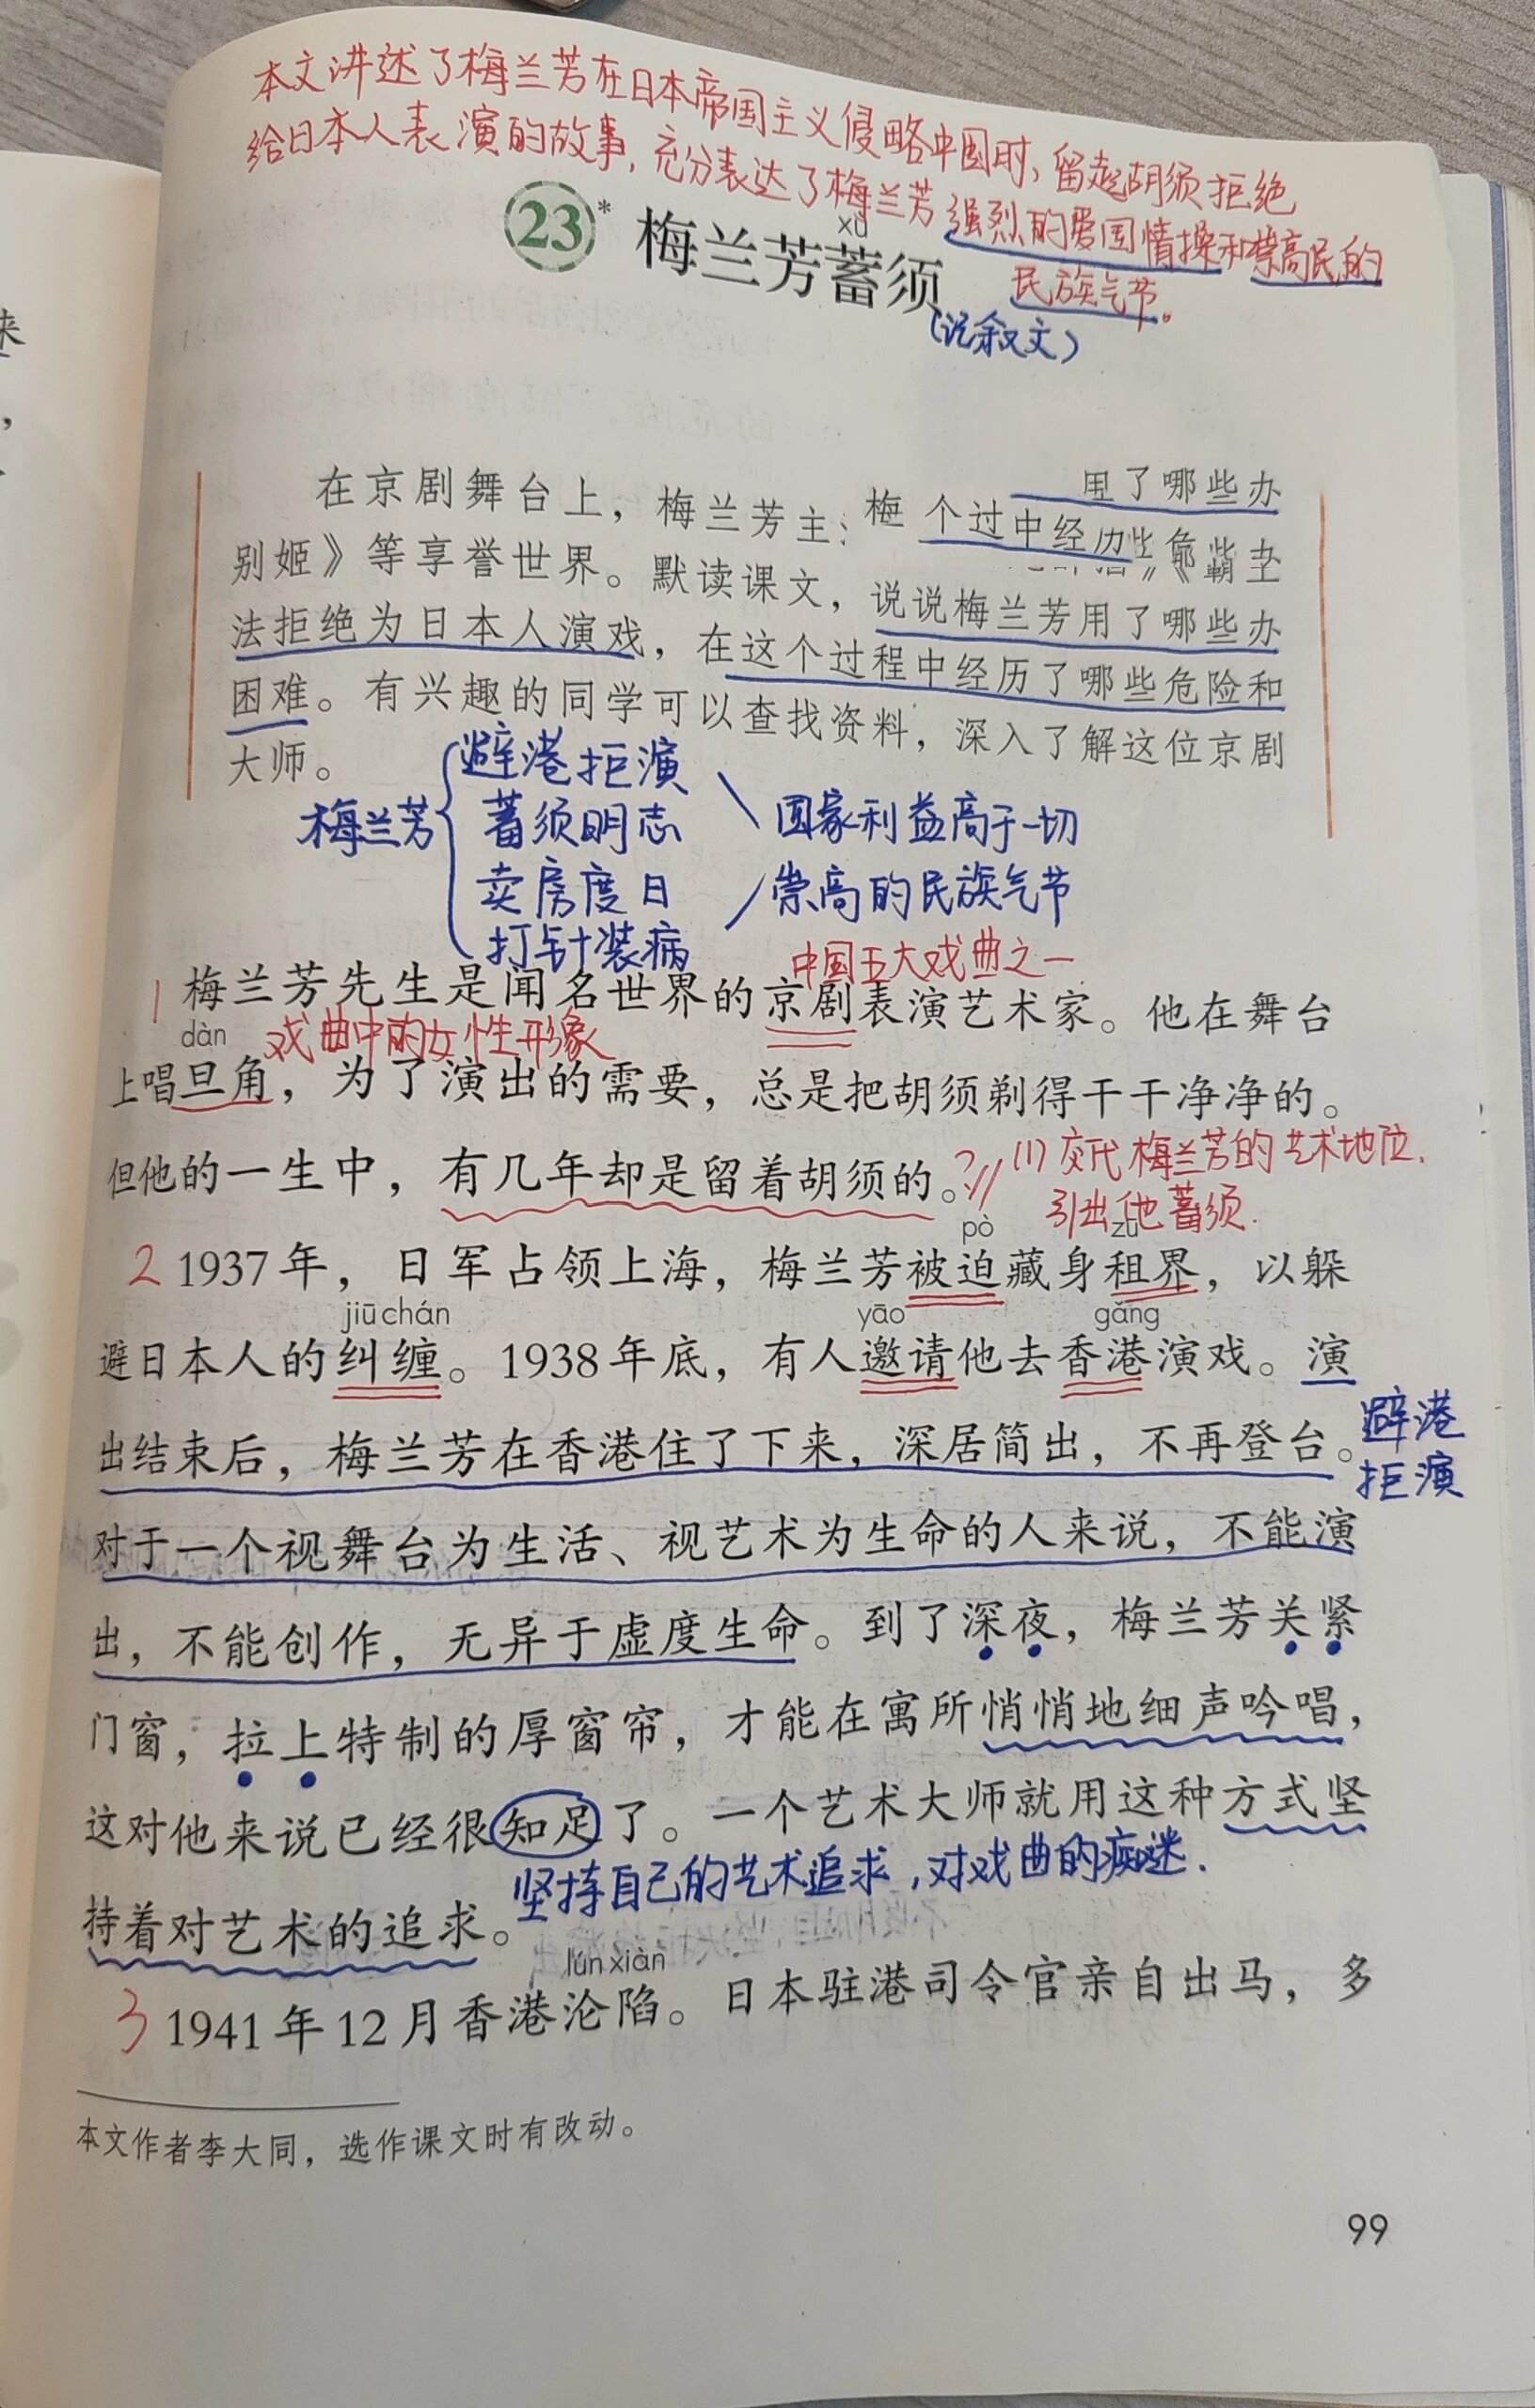 本文讲述了梅兰芳在日本帝国主义侵略中国时，留起胡须拒绝
给日本人表演的故事，充分表达了梅兰芳强烈的爱国情操和崇高民的
民族气节。
23*
xù
梅兰芳蓄须
(记叙文)
在京剧舞台上，梅兰芳主 梅 个过中经历 用了哪些办
别姬》等享誉世界。默读课文，说说梅兰芳用了哪些办
法拒绝为日本人演戏，在这个过程中经历了哪些危险和
困难。有兴趣的同学可以查找资料，深入了解这位京剧
大师。
梅兰芳
避港拒演
蓄须明志
卖房度日
打针装病
国家利益高于一切
崇高的民族气节
中国五大戏曲之一
1 梅兰芳先生是闻名世界的京剧表演艺术家。他在舞台
dàn 戏曲中的女性形象
上唱旦角，为了演出的需要，总是把胡须剃得干干净净的。
但他的一生中，有几年却是留着胡须的。
(1)交代梅兰芳的艺术地位.
引出他蓄须.
pò zū
2 1937年，日军占领上海，梅兰芳被迫藏身租界，以躲
jiū chán yāo gǎng
避日本人的纠缠。1938年底，有人邀请他去香港演戏。演
出结束后，梅兰芳在香港住了下来，深居简出，不再登台。
避港
拒演
对于一个视舞台为生活、视艺术为生命的人来说，不能演
出，不能创作，无异于虚度生命。到了深夜，梅兰芳关紧
门窗，拉上特制的厚窗帘，才能在寓所悄悄地细声吟唱，
这对他来说已经很知足了。一个艺术大师就用这种方式坚
坚持自己的艺术追求，对戏曲的痴迷.
持着对艺术的追求。
lún xiàn
3 1941年12月香港沦陷。日本驻港司令官亲自出马，多
本文作者李大同，选作课文时有改动。
99